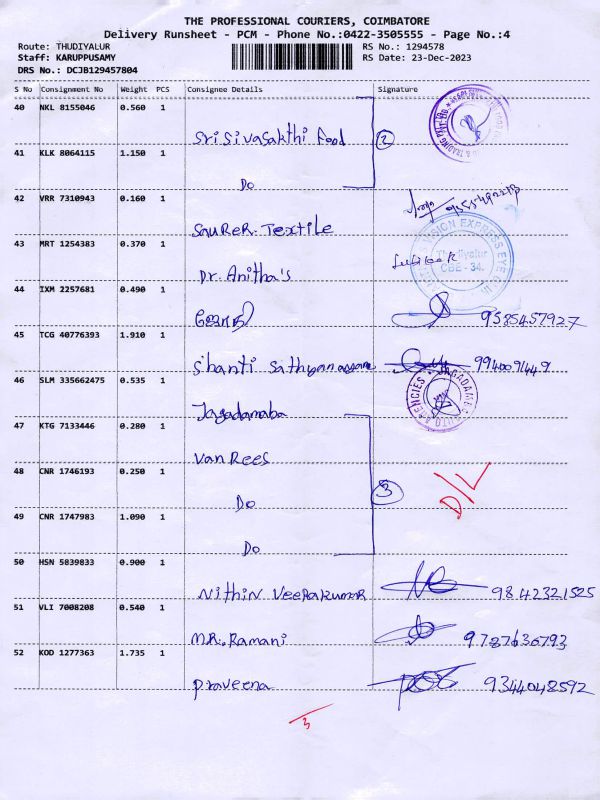 THE PROFESSIONAL COURIERS, COIMBATORE
Delivery Runsheet - PCM - Phone No.:0422-3505555 - Page No.:4
Route: THUDIYALUR
RS No.: 1294578
Staff: KARUPPUSAMY
RS Date: 23-Dec-2023
DRS No.: DCJB129457804
S No Consignment No Weight PCS Consignee Details Signature
40 NKL 8155046 0.560 1
Sri Sivasakthi Food
2
41 KLK 8064115 1.150 1
Do
42 VRR 7310943 0.160 1
Saurer. Textile
43 MRT 1254383 0.370 1
Dr. Anitha's
VISION EXPRESS EYE
Thudiyalur
CBE - 34.
44 IXM 2257681 0.490 1
ஜோதி
9585457927
45 TCG 40776393 1.910 1
Shanti Sathyanarayana
46 SLM 335662475 0.535 1
Jagadamaba
JAGADAMBA AUTO AGENCIES
47 KTG 7133446 0.280 1
Van Rees
48 CNR 1746193 0.250 1
Do
3
D/L
49 CNR 1747983 1.090 1
Do
50 HSN 5839833 0.900 1
Nithin Veerakumar
9842321525
51 VLI 7008208 0.540 1
M.R. Ramani
9787636793
52 KOD 1277363 1.735 1
Praveena
9344048592
3